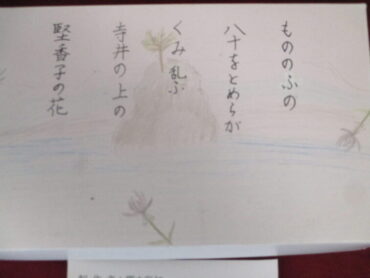 もののふの
八十をとめらが
くみ乱ふ
寺井の上の
堅香子の花